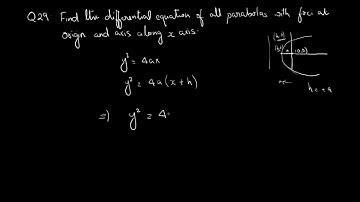 Q29 Find the differential equation of all parabolas with foci at
origin and axis along x axis.
y² = 4ax
y² = 4a(x+h)
(0,0)
h = +a
⇒ y² = 4